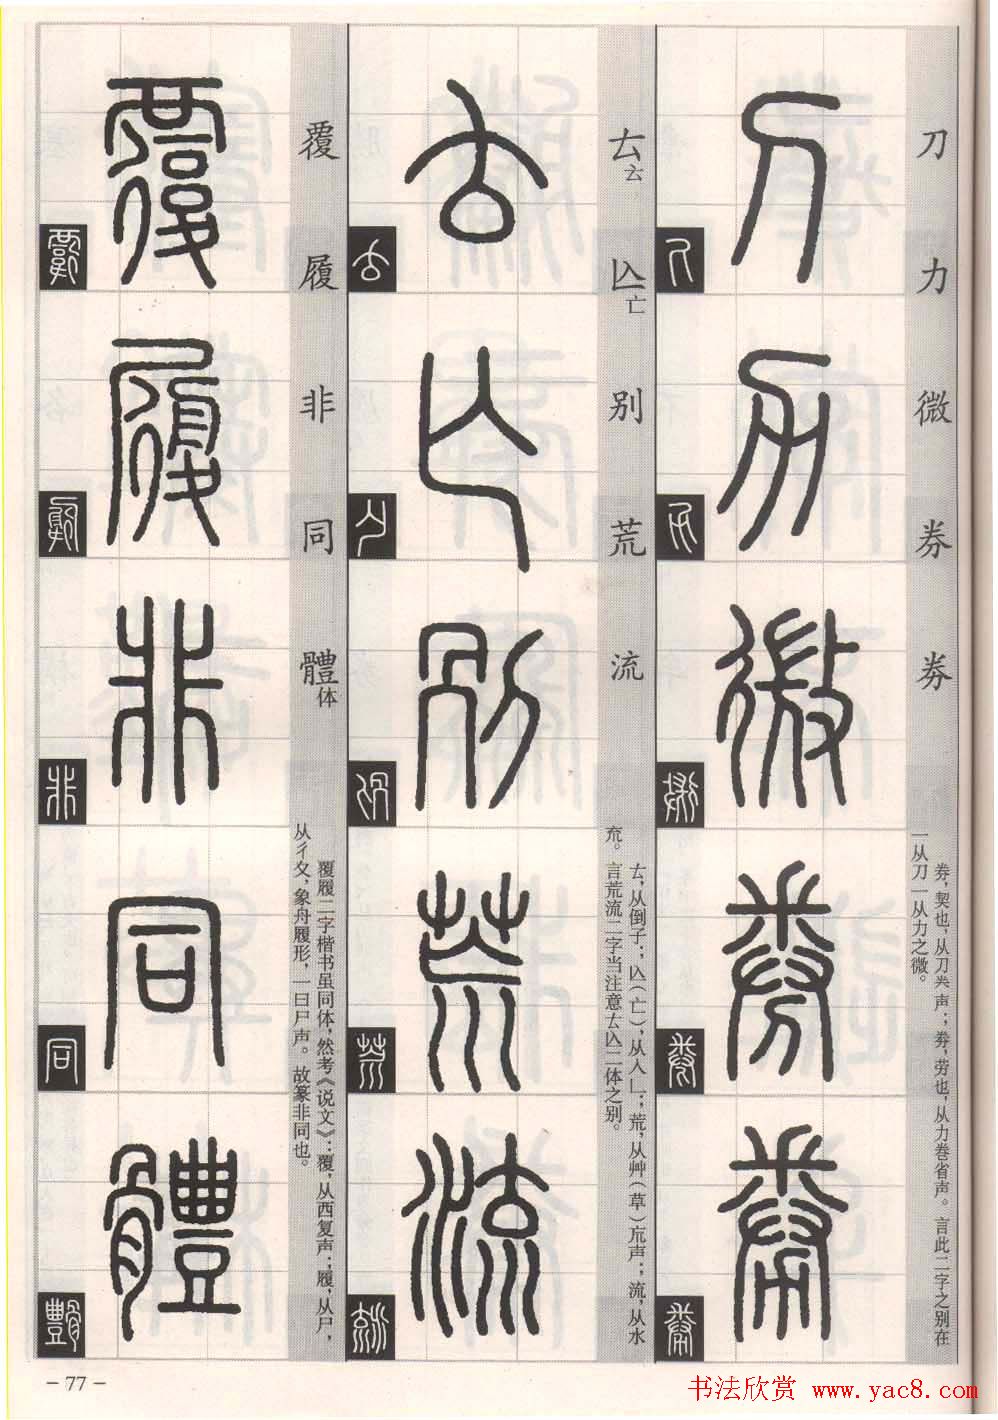 刀力微券劵
券,契也,从刀𠔉声;劵,劳也,从力卷省声。言此二字之别在
一从刀一从力之微。
𠫓
亾亡别荒流
𠫓,从倒子;亾(亡),从人乚;荒,从艸(草)巟声;流,从水
㐬。言荒流二字当注意𠫓亾二体之别。
覆履非同體体
覆履二字楷书虽同体,然考《说文》:覆,从覀复声;履,从尸,
从彳夂,象舟履形,一曰尸声。故篆非同也。
－77－
书法欣赏 www.yac8.com